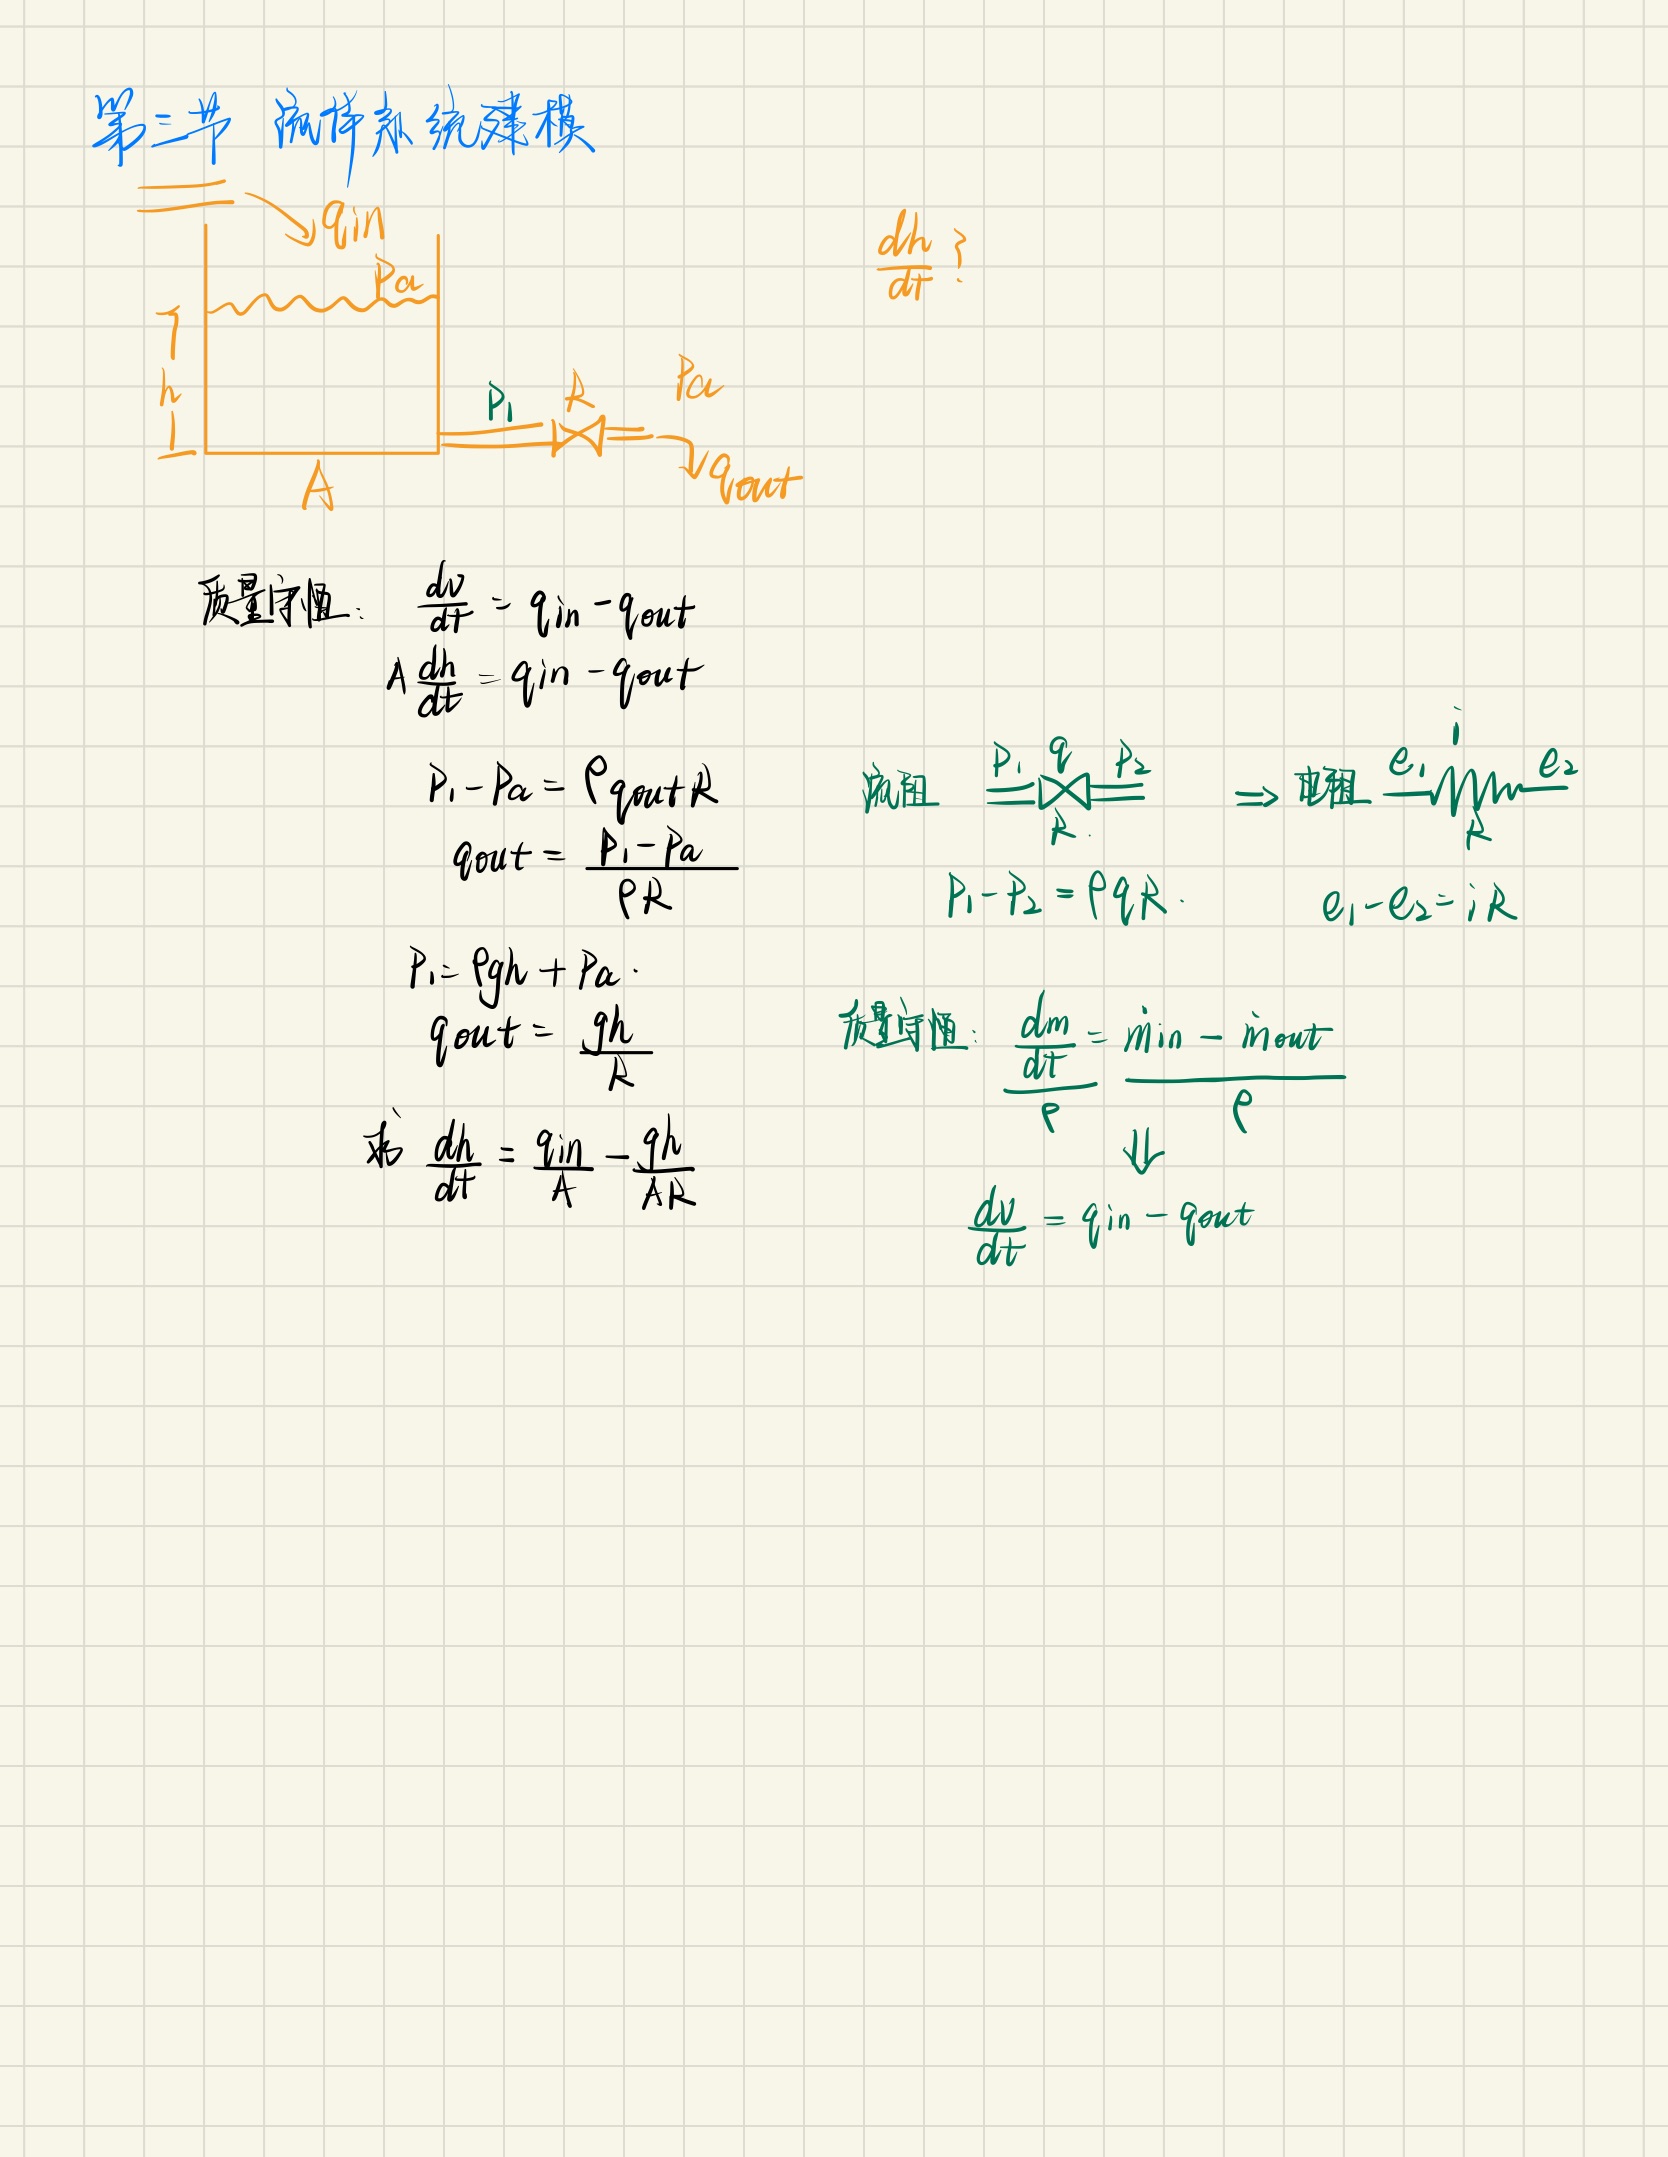 第三节 流体系统建模
qin
Pa
dh/dt ?
h
P₁
R
Pa
qout
A
质量守恒: dv/dt = qin - qout
A dh/dt = qin - qout
P₁ - Pa = ρ qout R
qout = (P₁ - Pa)/(ρR)
P₁ = ρgh + Pa.
qout = gh/R
求 dh/dt = qin/A - gh/(AR)
流阻 P₁ q P₂ R. ⇒ 电阻 e₁ i e₂ R
P₁ - P₂ = ρqR. e₁ - e₂ = iR
质量守恒: (dm/dt)/ρ = (ṁin - ṁout)/ρ
⇓
dv/dt = qin - qout